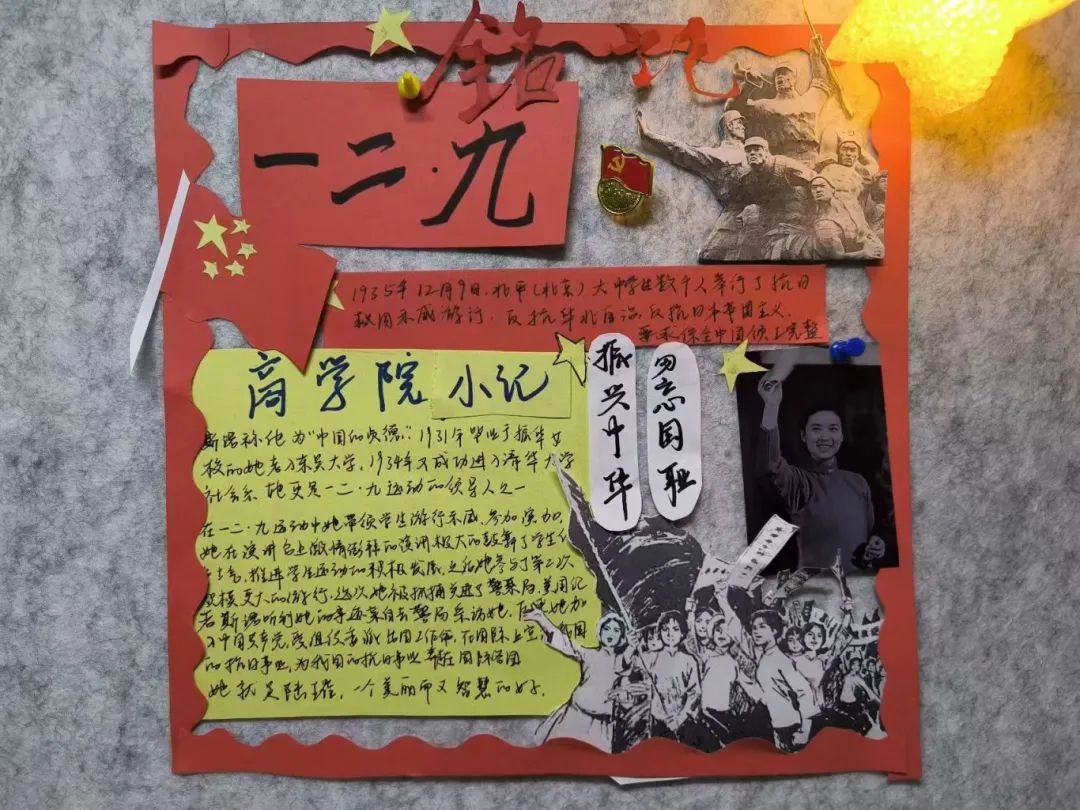 铭记
一二·九
1935年12月9日,北平(北京)大中学生数千人举行了抗日
救国示威游行,反抗华北自治,反抗日本帝国主义,
要求保全中国领土完整
商学院 小记
振兴中华
勿忘国耻
斯诺称他为“中国的贞德”.1931年毕业于振华女
校的她考入东吴大学,1934年又成功进入清华大学
社会系.她更是一二·九运动的领导人之一
在一二·九运动中她带领学生游行示威,参加演加,
她在演讲台上激情澎湃的演讲极大的鼓舞了学生们
士气,推进学生运动的积极发展,之后她参与了第二次
规模更大的游行,这次她被抓捕关进了警察局,美国记
者斯诺听到她的事迹亲自去警局采访她.后来她加
入中国共产党,受组织委派出国工作命,在国际上宣
的抗日事业,为我国的抗日事业
她就是陆璀,一个美丽而又智慧的女子.